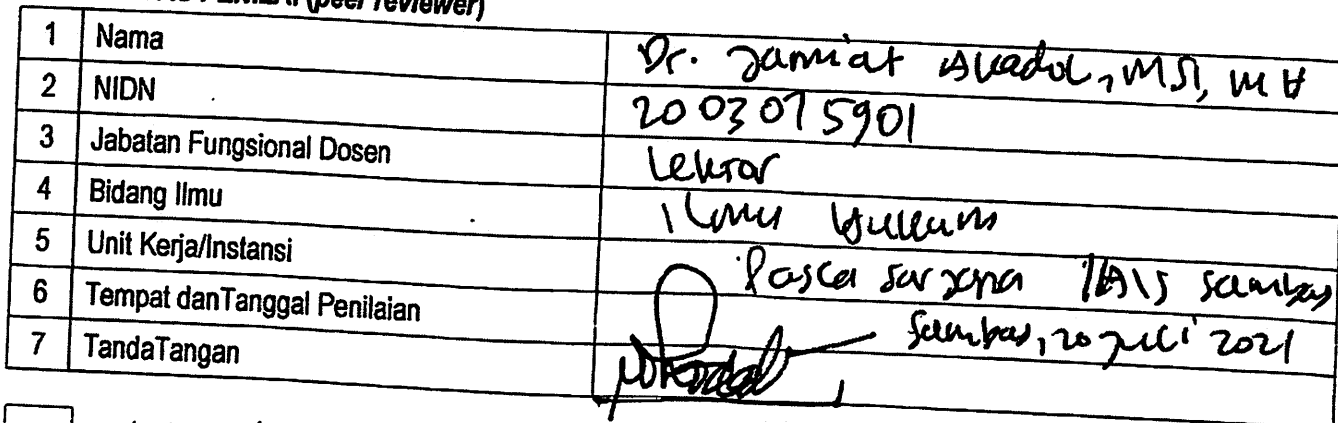 (peer reviewer)
1 Nama Dr. Jamiat Akadol, MSI, MH
2 NIDN 2003075901
3 Jabatan Fungsional Dosen Lektor
4 Bidang Ilmu Ilmu Hukum
5 Unit Kerja/Instansi Pasca Sarjana IAIS Sambas
6 Tempat danTanggal Penilaian Sambas, 20 Juli 2021
7 TandaTangan